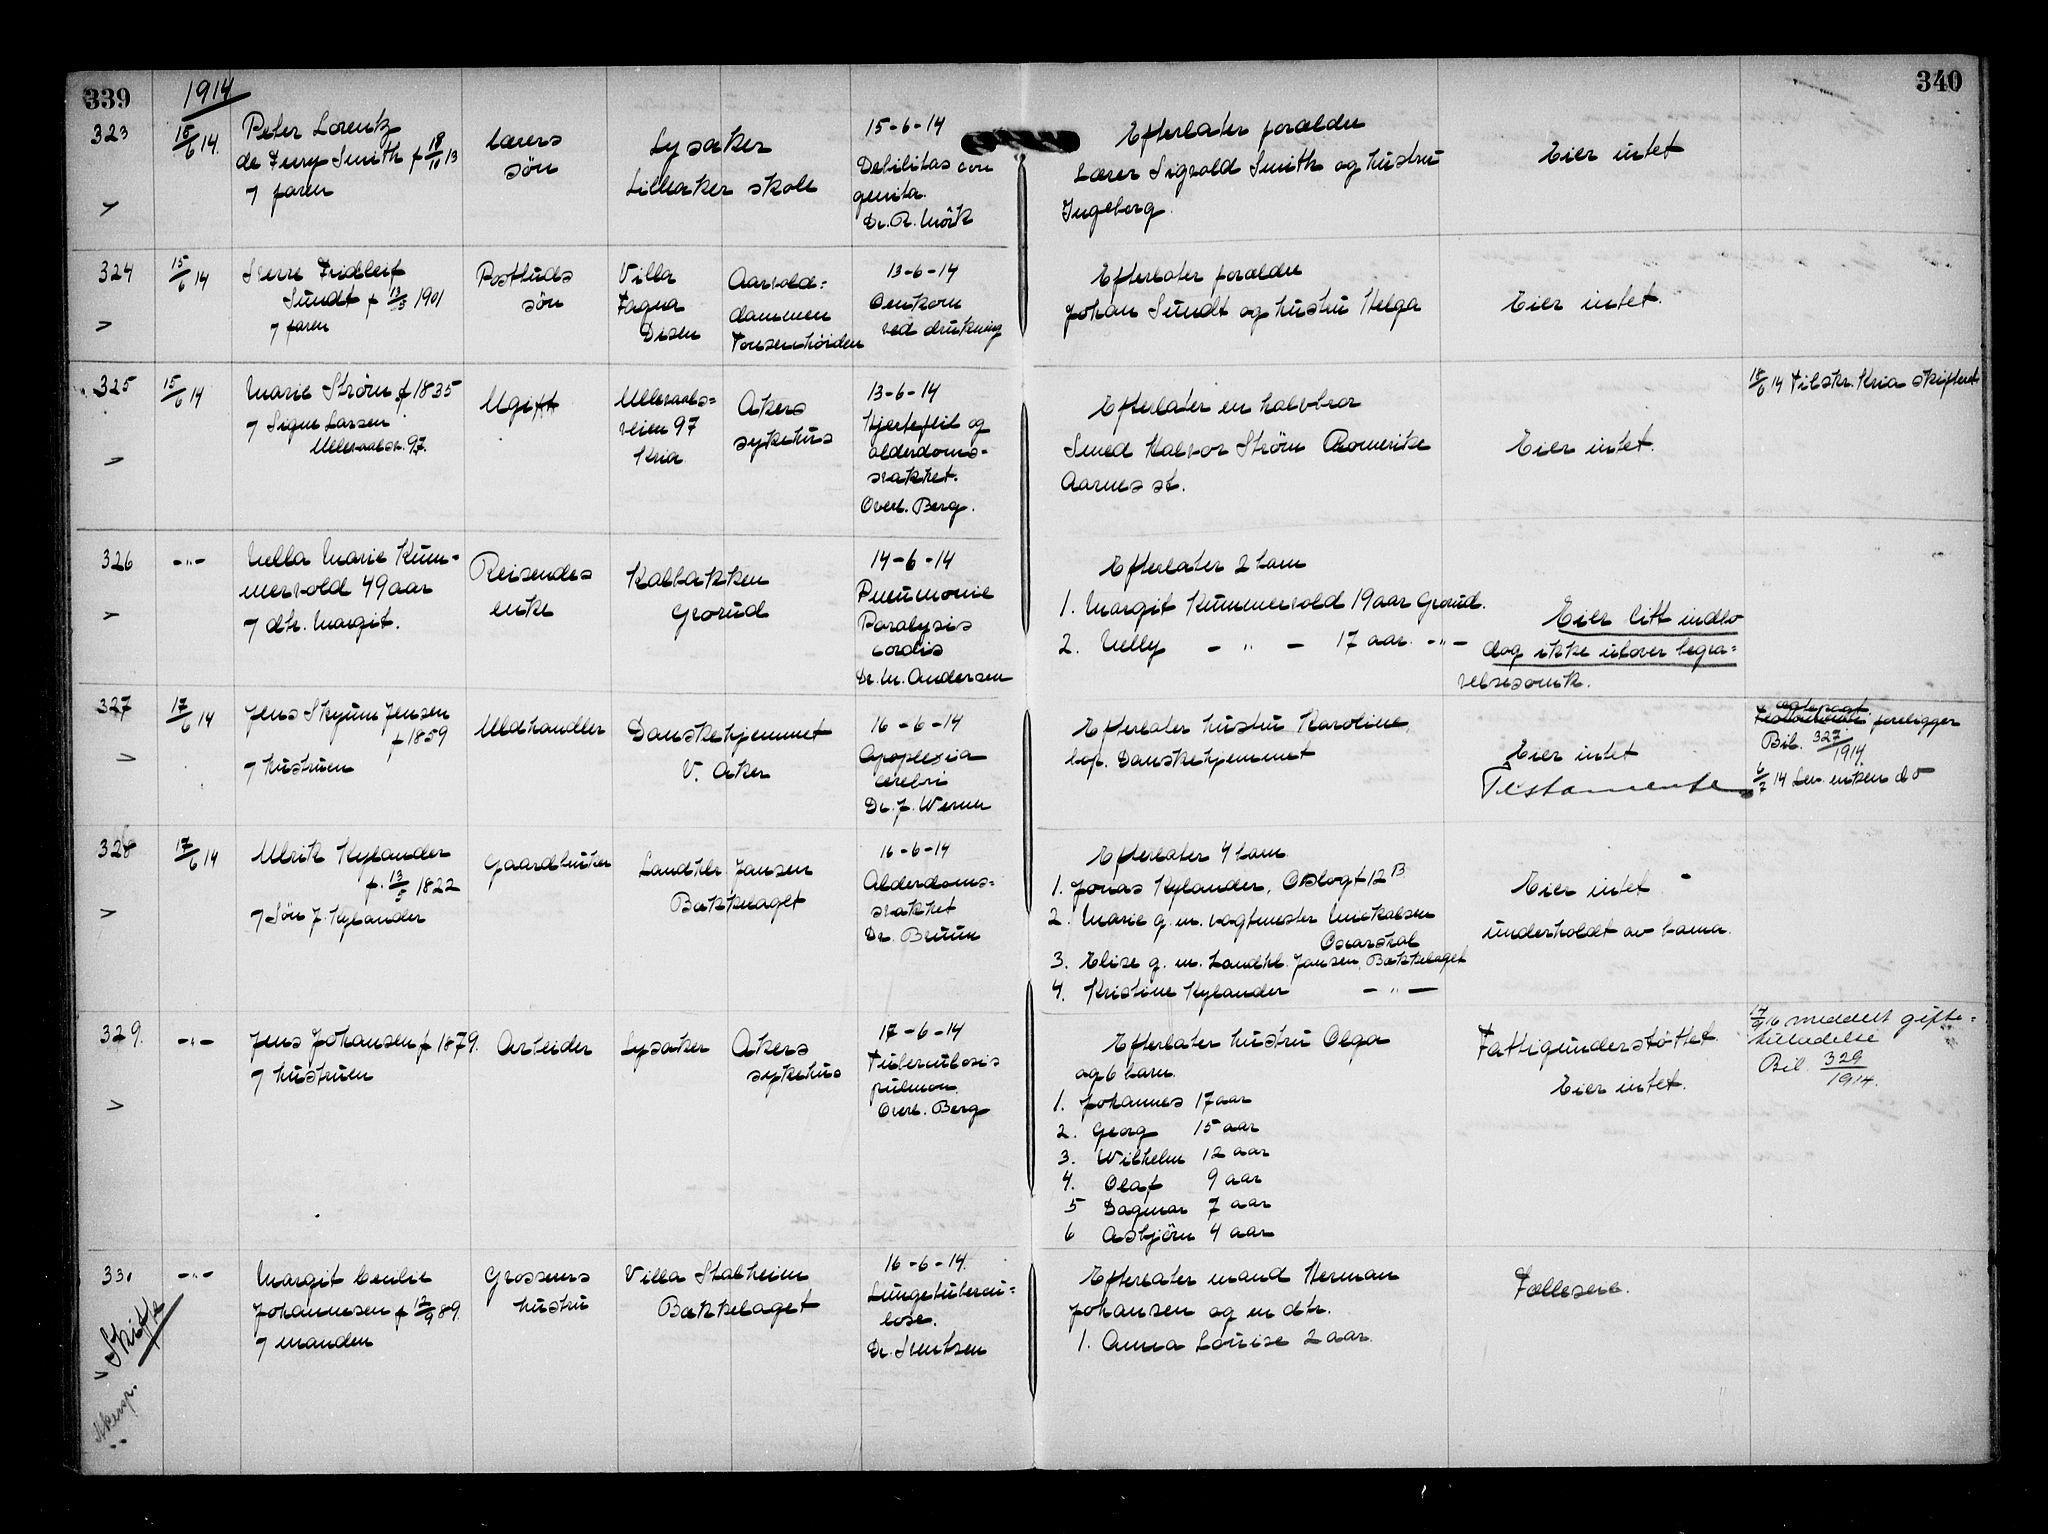 339
340
1914
323
15/6 14.
Peter Lorentz
de Ferry Smith f 18/11 13
7 faren
Lærers
søn
Lysaker
Lilleaker skole
15-6-14
Debilitas con
genita.
Dr. R. Mörk
Efterlater forældre
Lærer Sigvald Smith og hustru
Ingeborg.
Eier intet
324
15/6 14
Sverre Fridleif
Sundt f 13/5 1901
7 faren
Postbuds
søn
Villa
Fagna
Disen
Aarvold=
dammen
Tonsenhøiden
13-6-14
Omkom
ved drukning
Efterlater forældre
Johan Sundt og hustru Helga
Eier intet.
325
15/6 14
Marie Strøm f 1835
7 Signe Larsen
Ullevaalsv. 97.
Ugift
Ullevaals=
veien 97
Kria
Akers
sykehus
13-6-14
Hjertefeil og
alderdoms-
svakhet.
Overl. Berg.
Efterlater en halvbror
Smed Halvor Strøm Romerike
Aarnes st.
Eier intet.
18/6 14 Tilskr. Kria skifteret
326
-"-
Nella Marie Kum-
mervold 49 aar
7 dtr. Margit.
Reisendes
enke
Kalbakken
Grorud
14-6-14
Pneumonie
Paralysis
cordis
Dr. M. Andersen
Efterlater 2 barn
1. Margit Kummervold 19 aar Grorud.
2. Nelly - " - 17 aar. -"-
Eier litt indbo
dog ikke utover begra=
velsesomk.
327
17/6 14
Jens Skjum Jensen
f 1859
7 hustruen
Uldhandler
Danskehjemmet
V. Aker
16-6-14
Apoplexia
cerebri
Dr. J. Werner
Efterlater hustru Karoline,
bop. Danskehjemmet
Eier intet
Testamente
Ægtepagt
foreligger
Bil. 327/1914.
6/7 14 Lev. enken do
328
17/6 14
Ulrik Kylander
f. 13/5 1822
7 Søn J. Kylander
Gaardbruker
Landhlr Jansen
Bækkelaget
16-6-14
Alderdoms=
svakhet
Dr. Bruun
Efterlater 4 barn
1. Jonas Kylander, Oslogt 12 B.
2. Marie g. m. vogtmester Mickalsen
Oscarshal
3. Elise g. m. Landhl. Jansen, Bækkelaget
4. Kristine Kylander - " -
Eier intet -
underholdt av barna.
329.
-"-
Jens Johansen f 1879.
7 hustruen
Arbeider
Lysaker
Akers
sykehus
17-6-14
Tuberculosis
pulmon.
Overl. Berg
Efterlater hustru Olga
og 6 barn.
1. Johannes 17 aar
2. Georg 15 aar
3. Wilhelm 12 aar
4. Olaf 9 aar
5 Dagmar 7 aar
6 Asbjörn 4 aar
Fattigunderstøttet.
Eier intet.
meddelt gifte=
tilladelse
Bil. 329/1914.
330
-"-
Margit Cecilie
Johannesen f 12/9 89.
7 manden
Grosserers
hustru
Villa Stalheim
Bækkelaget
16-6-14.
Lungetubercu=
lose.
Dr. Sventsen
Efterlater mand Herman
Johansen og en dtr.
1. Anna Louise 2 aar.
Fælleseie.
Skifte
Akersp.